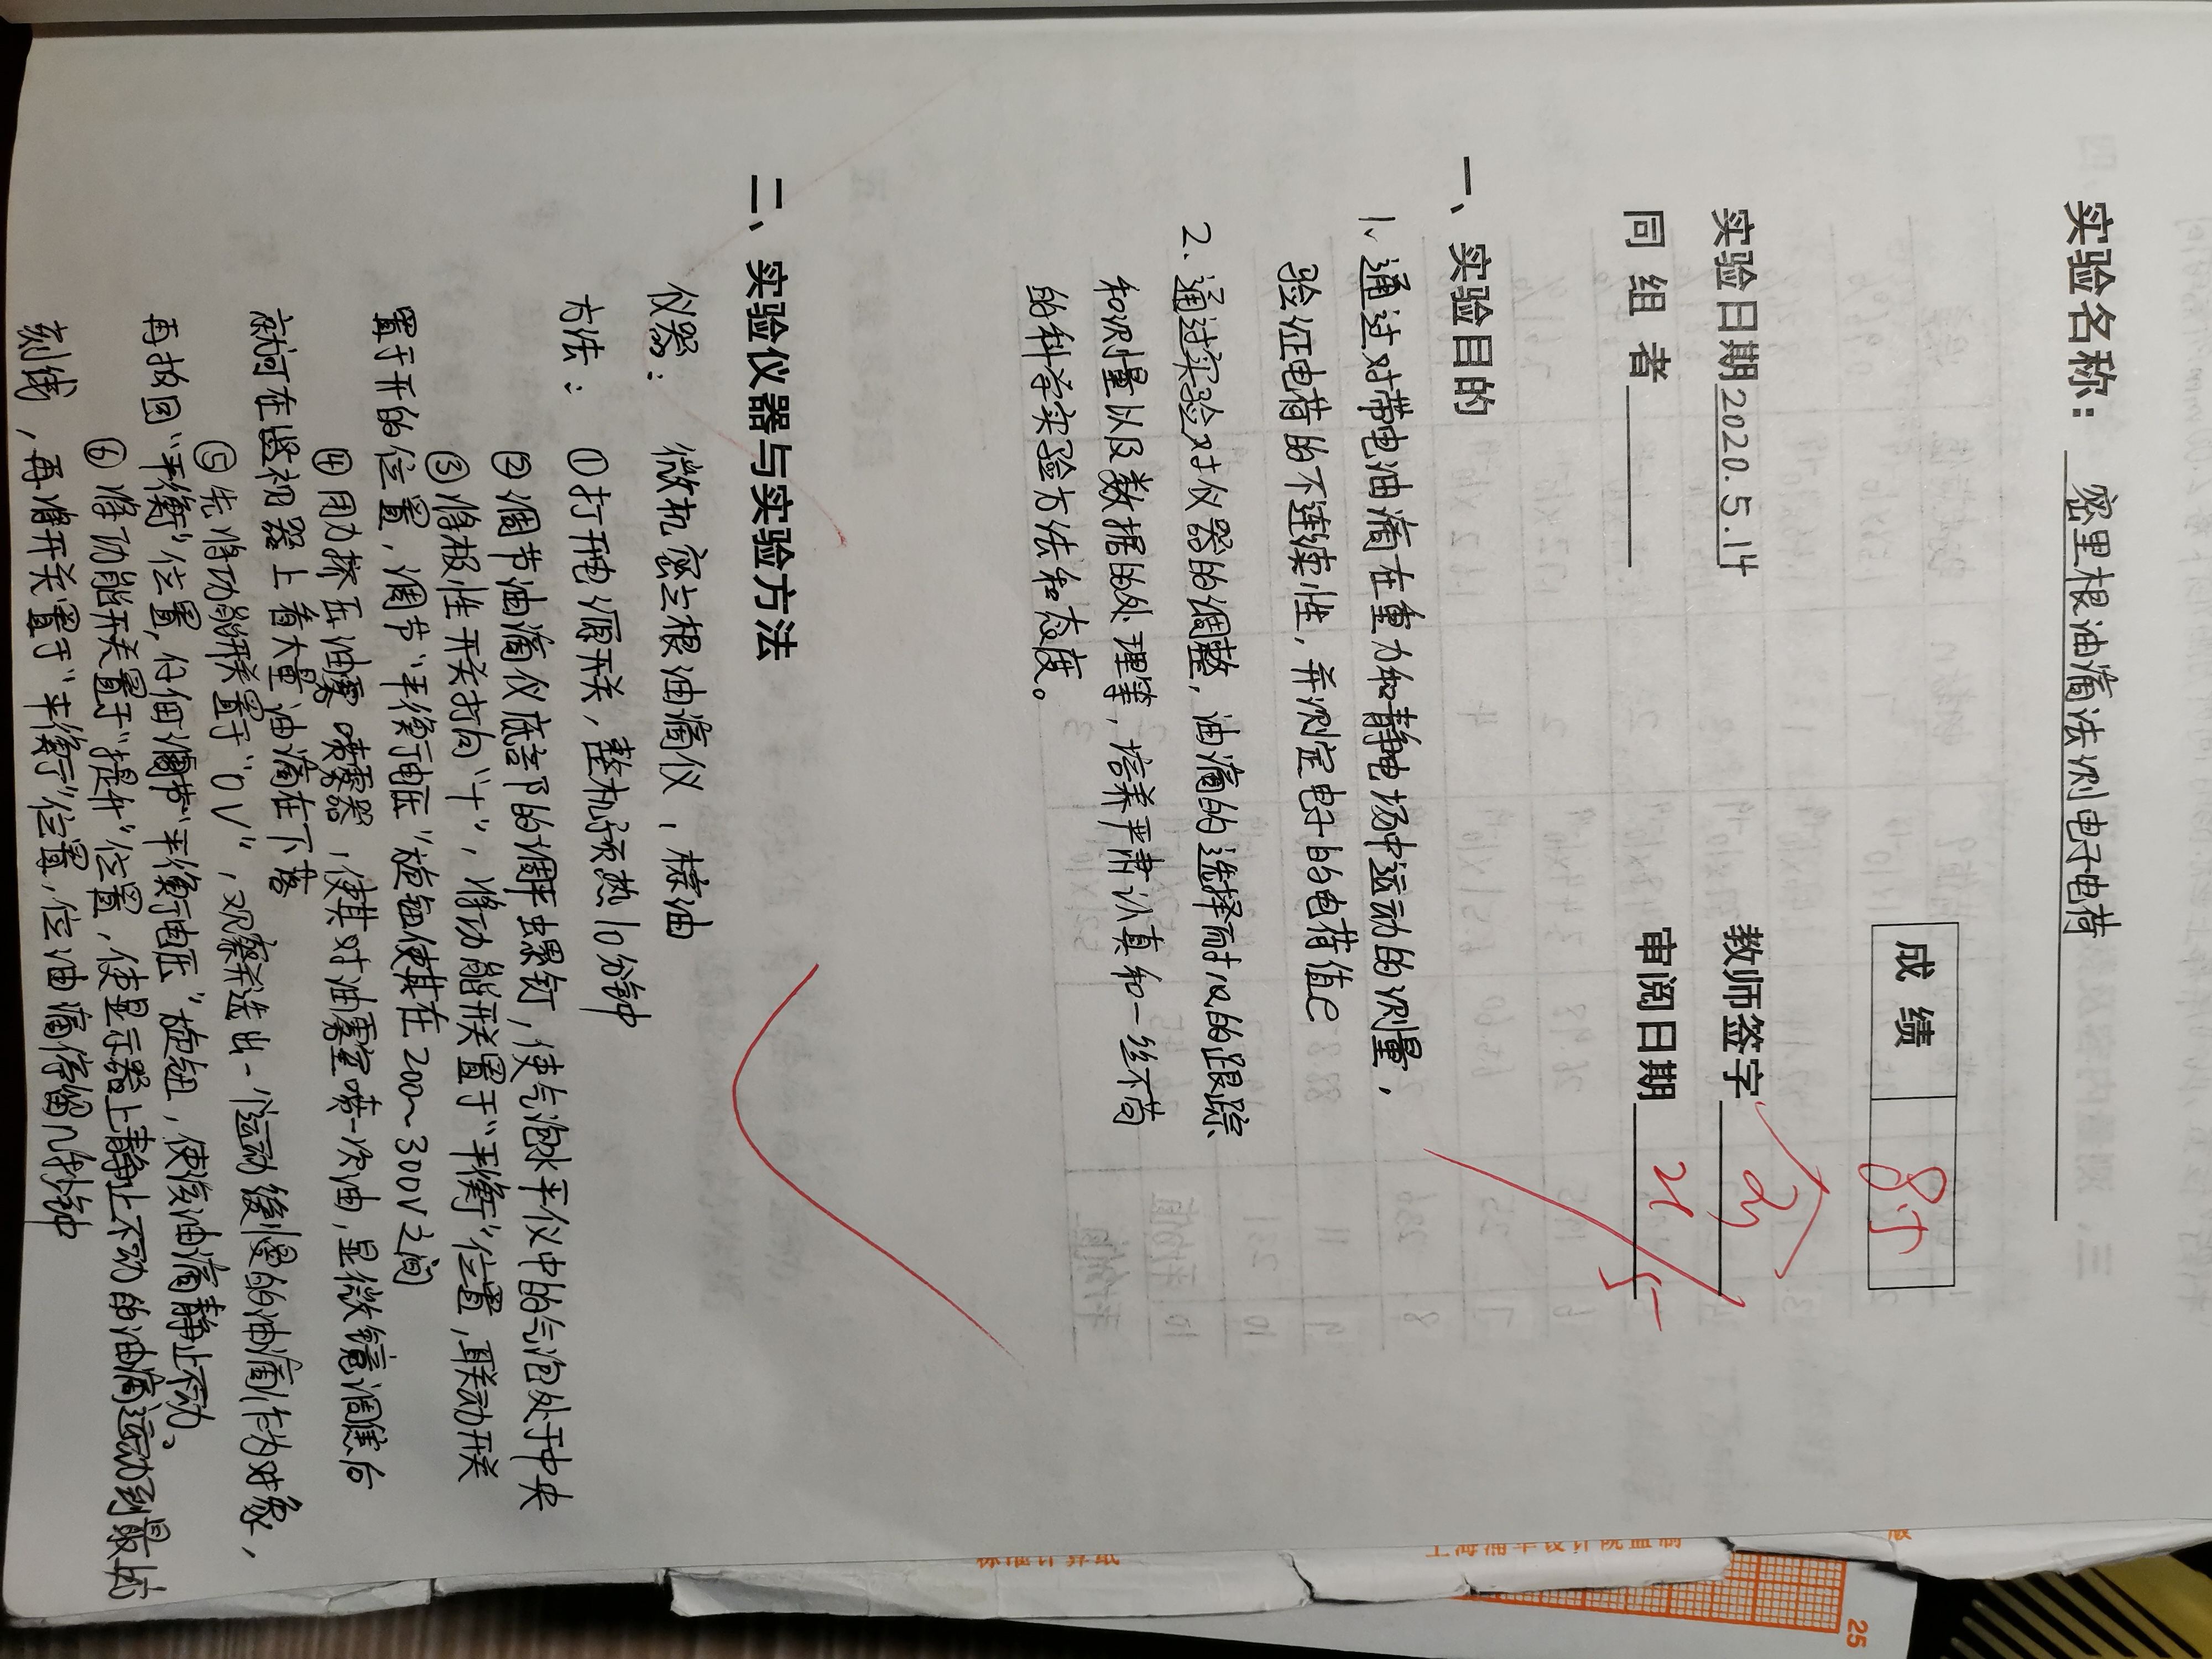 实验名称：密里根油滴法测电子电荷
成绩 85
实验日期 2020.5.14 教师签字
同组者 审阅日期 21/5
一、实验目的
1、通过对带电油滴在重力和静电场中运动的测量，
验证电荷的不连续性，并测定电子的电荷值e
2.通过实验对仪器的调整，油滴的选择耐心的跟踪
和测量以及数据的处理等，培养严肃认真和一丝不苟
的科学实验方法和态度。
二、实验仪器与实验方法
仪器： 微机密立根油滴仪，棕油
方法： ①打开电源开关，整机预热10分钟
②调节油滴仪底部的调平螺钉，使气泡水平仪中的气泡处于中央
③将极性开关打向“+”，将功能开关置于“平衡”位置，联动开关
置于开的位置，调节“平衡电压”旋钮使其在200~300V之间
④用力挤压油雾喷雾器，使其对油雾室喷一次油，显微镜调焦后
就可在监视器上看大量油滴在下落
⑤先将功能开关置于“0V”，观察并选出一个运动缓慢的油滴作为对象，
再拨回“平衡”位置，仔细调节“平衡电压”旋钮，使该油滴静止不动。
⑥将功能开关置于“提升”位置，使显示器上静止不动的油滴运动到最上
刻线，再将开关置于“平衡”位置，位油滴停留几秒钟
标准计算纸
上海浦华设计院监制
版
25